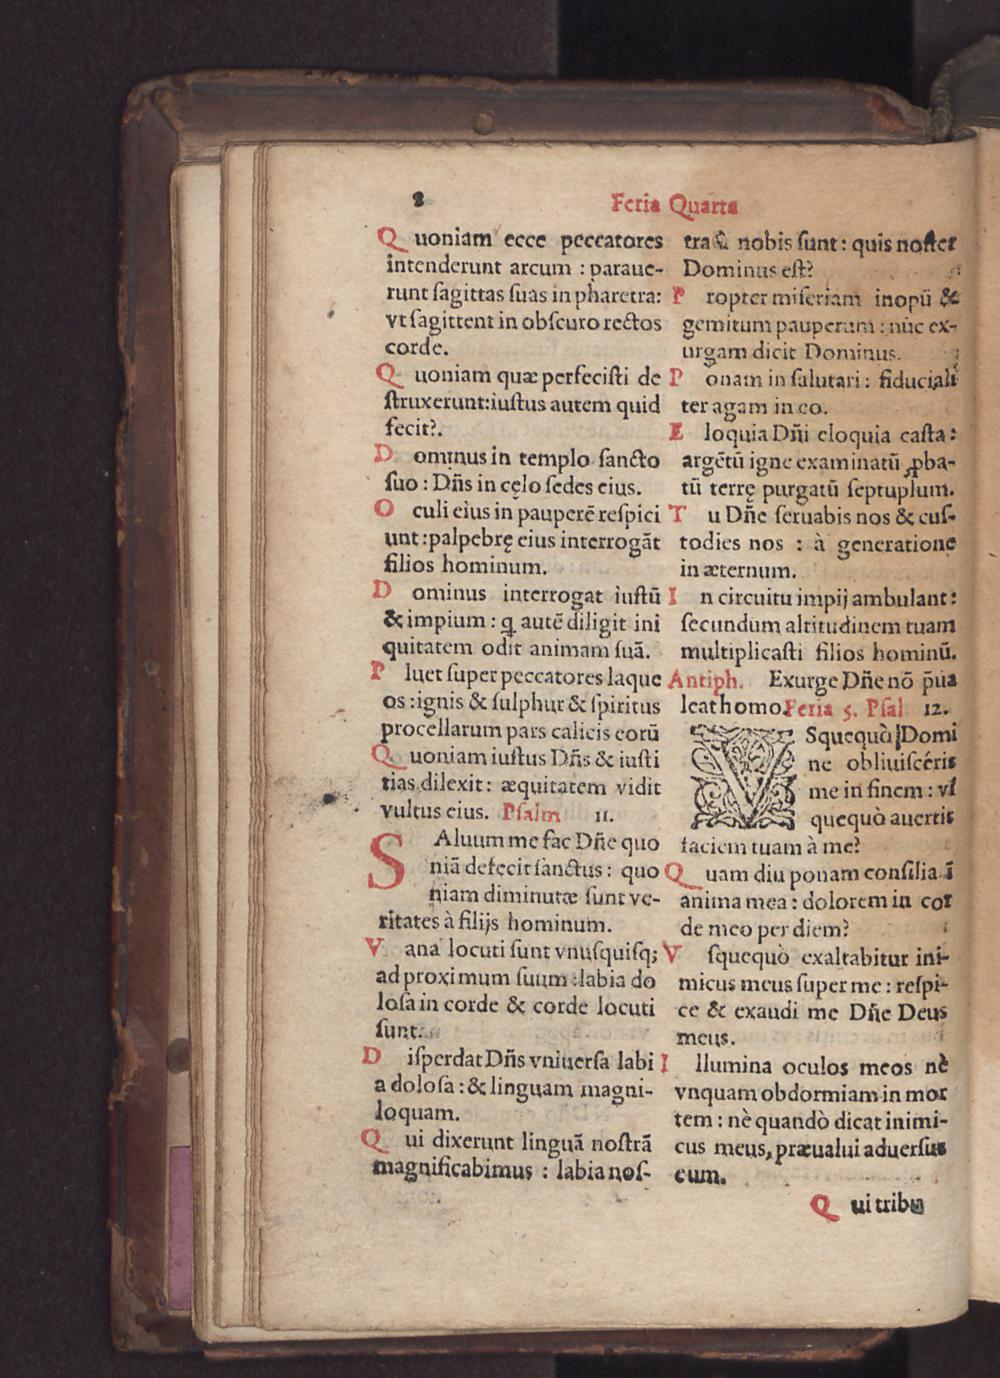 8
Feria Quarta
Quoniam ecce peccatores
intenderunt arcum : paraue-
runt sagittas suas in pharetra:
vt sagittent in obscuro rectos
corde.
Quoniam quæ perfecisti de
struxerunt:iustus autem quid
fecit?.
Dominus in templo sancto
suo : Dñs in cęlo sedes eius.
Oculi eius in pauperē respici
unt :palpebrę eius interrogāt
filios hominum.
Dominus interrogat iustū
& impium : q autē diligit ini
quitatem odit animam suā.
Pluet super peccatores laque
os :ignis & sulphur & spiritus
procellarum pars calicis eorū
Quoniam iustus Dñs & iusti
tias dilexit : æquitatem vidit
vultus eius. Psalm 11.
SAluum me fac Dñe quo
niā defecit sanctus : quo
niam diminutæ sunt ve-
ritates à filijs hominum.
Vana locuti sunt vnusquisq;
ad proximum suum :labia do
losa in corde & corde locuti
sunt.
Disperdat Dñs vniuersa labi
a dolosa :& linguam magni-
loquam.
Qui dixerunt linguā nostrā
magnificabimus : labia nos-
tra à nobis sunt : quis noster
Dominus est?
Propter miseriam inopū &
gemitum pauperum : nūc ex-
urgam dicit Dominus.
Ponam in salutari : fiduciali
ter agam in eo.
Eloquia Dñi eloquia casta :
argētū igne examinatū ꝓba-
tū terrę purgatū septuplum.
Tu Dñe seruabis nos & cus-
todies nos : à generatione
in æternum.
In circuitu impij ambulant :
secundum altitudinem tuam
multiplicasti filios hominū.
Antiph. Exurge Dñe nō p̄ua
leat homo. Feria 5. Psal 12.
VSquequò Domi
ne obliuiscéris
me in finem : vs
quequò auertis
faciem tuam à me?
Quam diu ponam consilia ī
anima mea : dolorem in cor
de meo per diem?
Vsquequò exaltabitur ini-
micus meus super me : respi-
ce & exaudi me Dñe Deus
meus.
Illumina oculos meos nè
vnquam obdormiam in mor
tem : nè quandò dicat inimi-
cus meus, præualui aduersus
eum.
Qui tribu